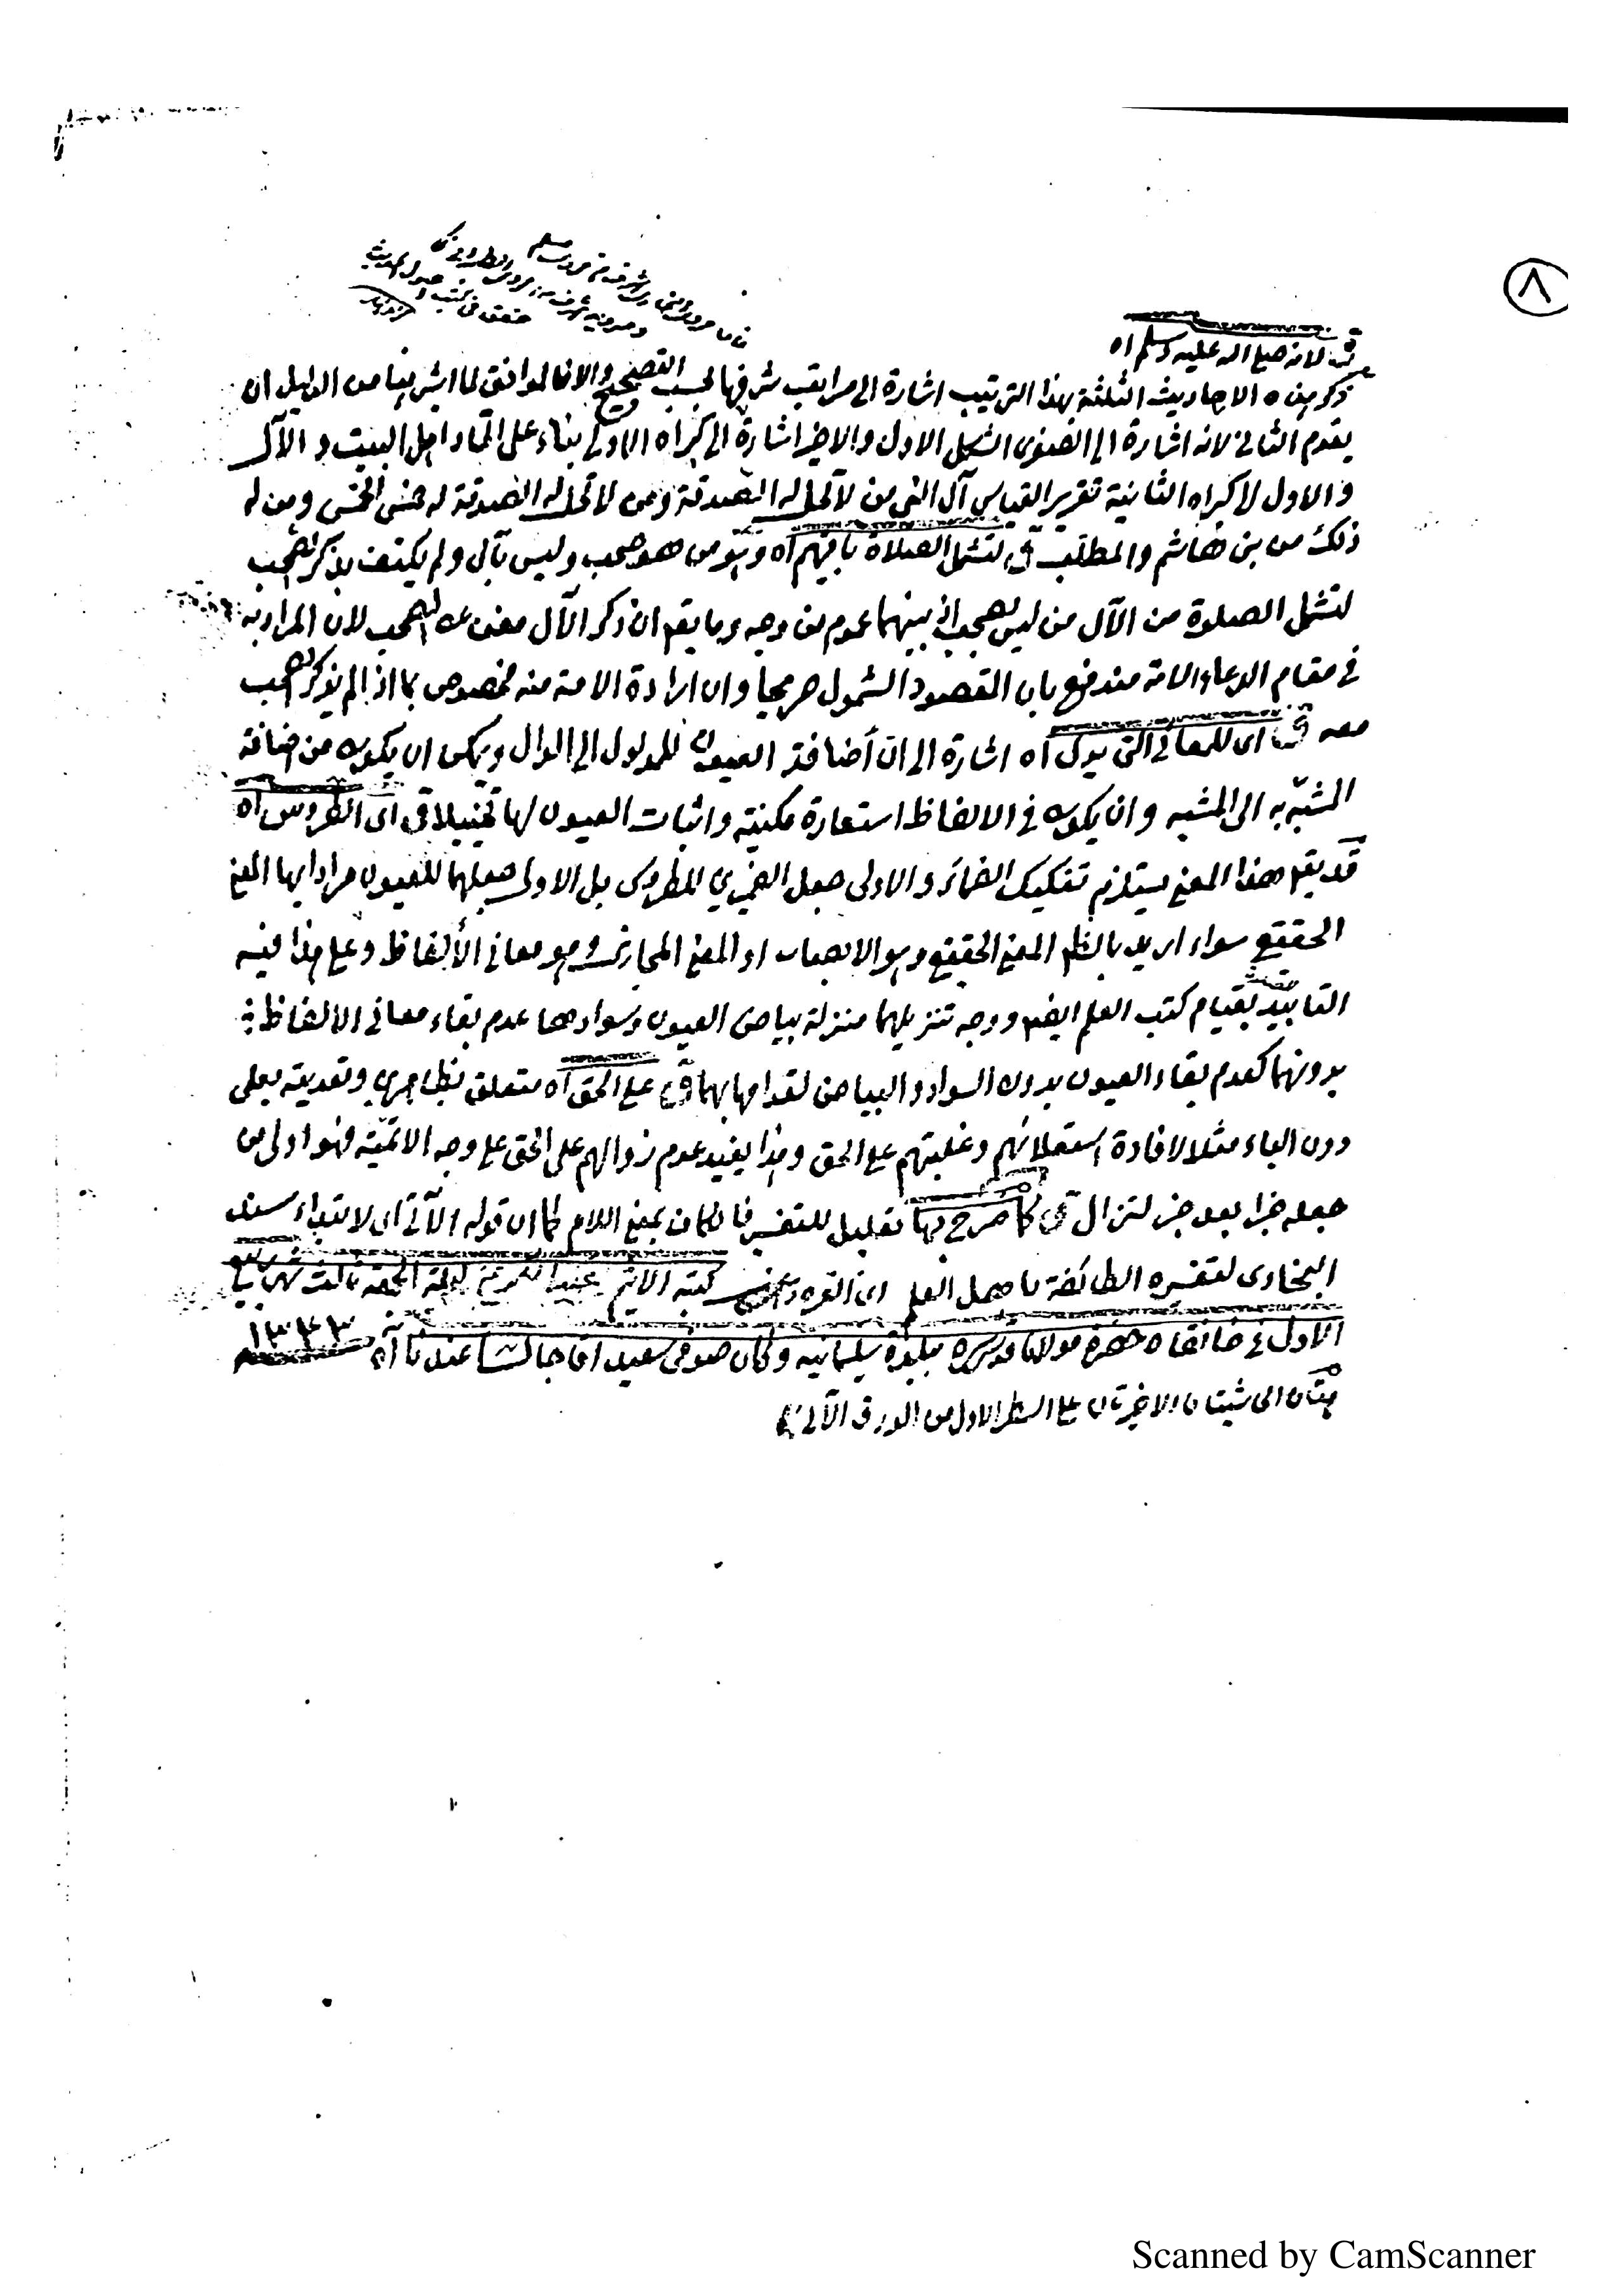 ٨
ق لانه صلى الله عليه وسلم اه
ذكر هذه الاحاديث الثلثة بهذا الترتيب اشارة الى مراتب شرفها بحسب التصحيح والا فالموافق لما اشير بها من الدليل ان
يقدم الثانى لانه اشارة الى الصغرى الشكل الاول والاخير اشارة الى كبراه الاولى بناء على اتحاد اهل البيت والآل
والاول لا كبراه الثانية تقرير القياس آل النبى من لا تحل له الصدقة ومن لا تحل له الصدقة له خمس الخمس ومن له
ذلك من بنى هاشم والمطلب ق لتشمل الصلاة باقيهم اه وهو من هو صحب وليس بآل ولم يكتف بذكر الصحب
لتشمل الصلوة من الآل من ليس بصحب اذ بينهما عموم من وجه وما يقم ان ذكر الآل مغن عن الصحب لان المراد به
فى مقام الدعاء الامة مندفع بان المقصود الشمول صريحا وان ارادة الامة منه مخصوص بما اذا لم يذكر الصحب
معه ق اى للمعانى التى يدل اه اشارة الى ان أضافة العيون للمدلول الى الدال ويمكن ان يكون من اضافة
المشبه به الى المشبه وان يكون فى الالفاظ استعارة مكنية واثبات العيون لها تخييلا ق اى الطروس اه
قد يقم هذا المعنى يستلزم تفكيك الضمائر والاولى جعل الضميرى للطروس بل الاولى جعلهما للعيون مرادا بها المعنى
الحقيقى سواء اريد بالنظم المعنى الحقيقى وهو الابصار او المعنى المجازى وهو معانى الألفاظ وعلى هذا فيه
التابيد بقيام كتب العلم ايضا ووجه تنزيلهما منزلة بياض العيون وسوادها عدم بقاء معانى الالفاظ
بدونهما كعدم بقاء العيون بدون السواد والبياض لقوامها بهما ق على الحق اه متعلق بظاهرين وتعديته بعلى
دون الباء مثلا لافادة استعلائهم وغلبتهم على الحق وهذا يفيد عدم زوالهم على الحق على وجه الاتمية فهو اولى من
جعله خبرا بعد خبر لتزال ق كما صرح بها تعليل للتفسير فالكاف بمعنى اللام كما ان قوله الآتى اى لابتداء سند
البخارى لتفسيره الطائفة باهل العلم كتبه الاثيم ليلة الجمعة ثالث شهر ربيع
الاول فى خانقاه حضرة مولانا قدس سره ببلدة سليمانيه وكان صوفى سعيد اقا جالسا عندنا ١٣٤٣
الاخيرتان على السطر الاول من الورق الآتى
Scanned by CamScanner